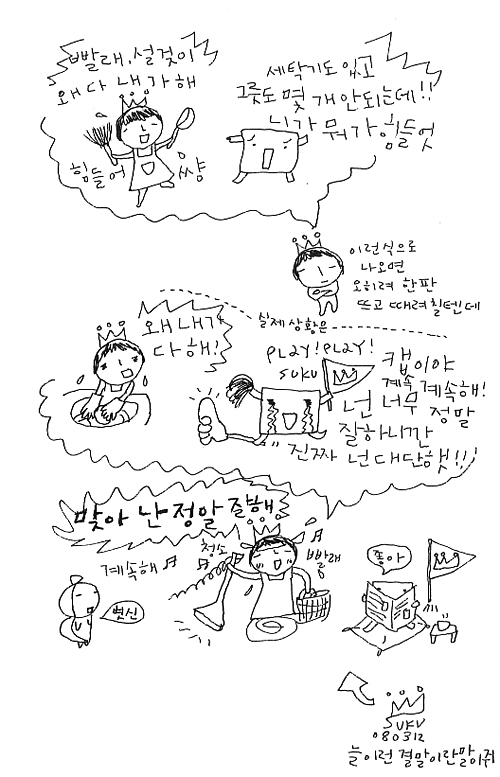 빨래, 설겆이
왜 다 내가 해
힘들어
쌰
세탁기도 있고
그릇도 몇 개 안되는데!!
니가 뭐가 힘들엇
이런식으로
나오면
오히려 한판
뜨고 때려칠텐데
실제상황은
왜 내가
다 해!
PLAY! PLAY!
SUKU
캡이야
계속 계속해!
넌 너무 정말
잘하니깐
진짜 넌 대단햇!!!
맞아 난 정말 잘해
계속해
청소
빨래
볏신
좋아
SUKU
080312
늘 이런 결말이란말이쥐